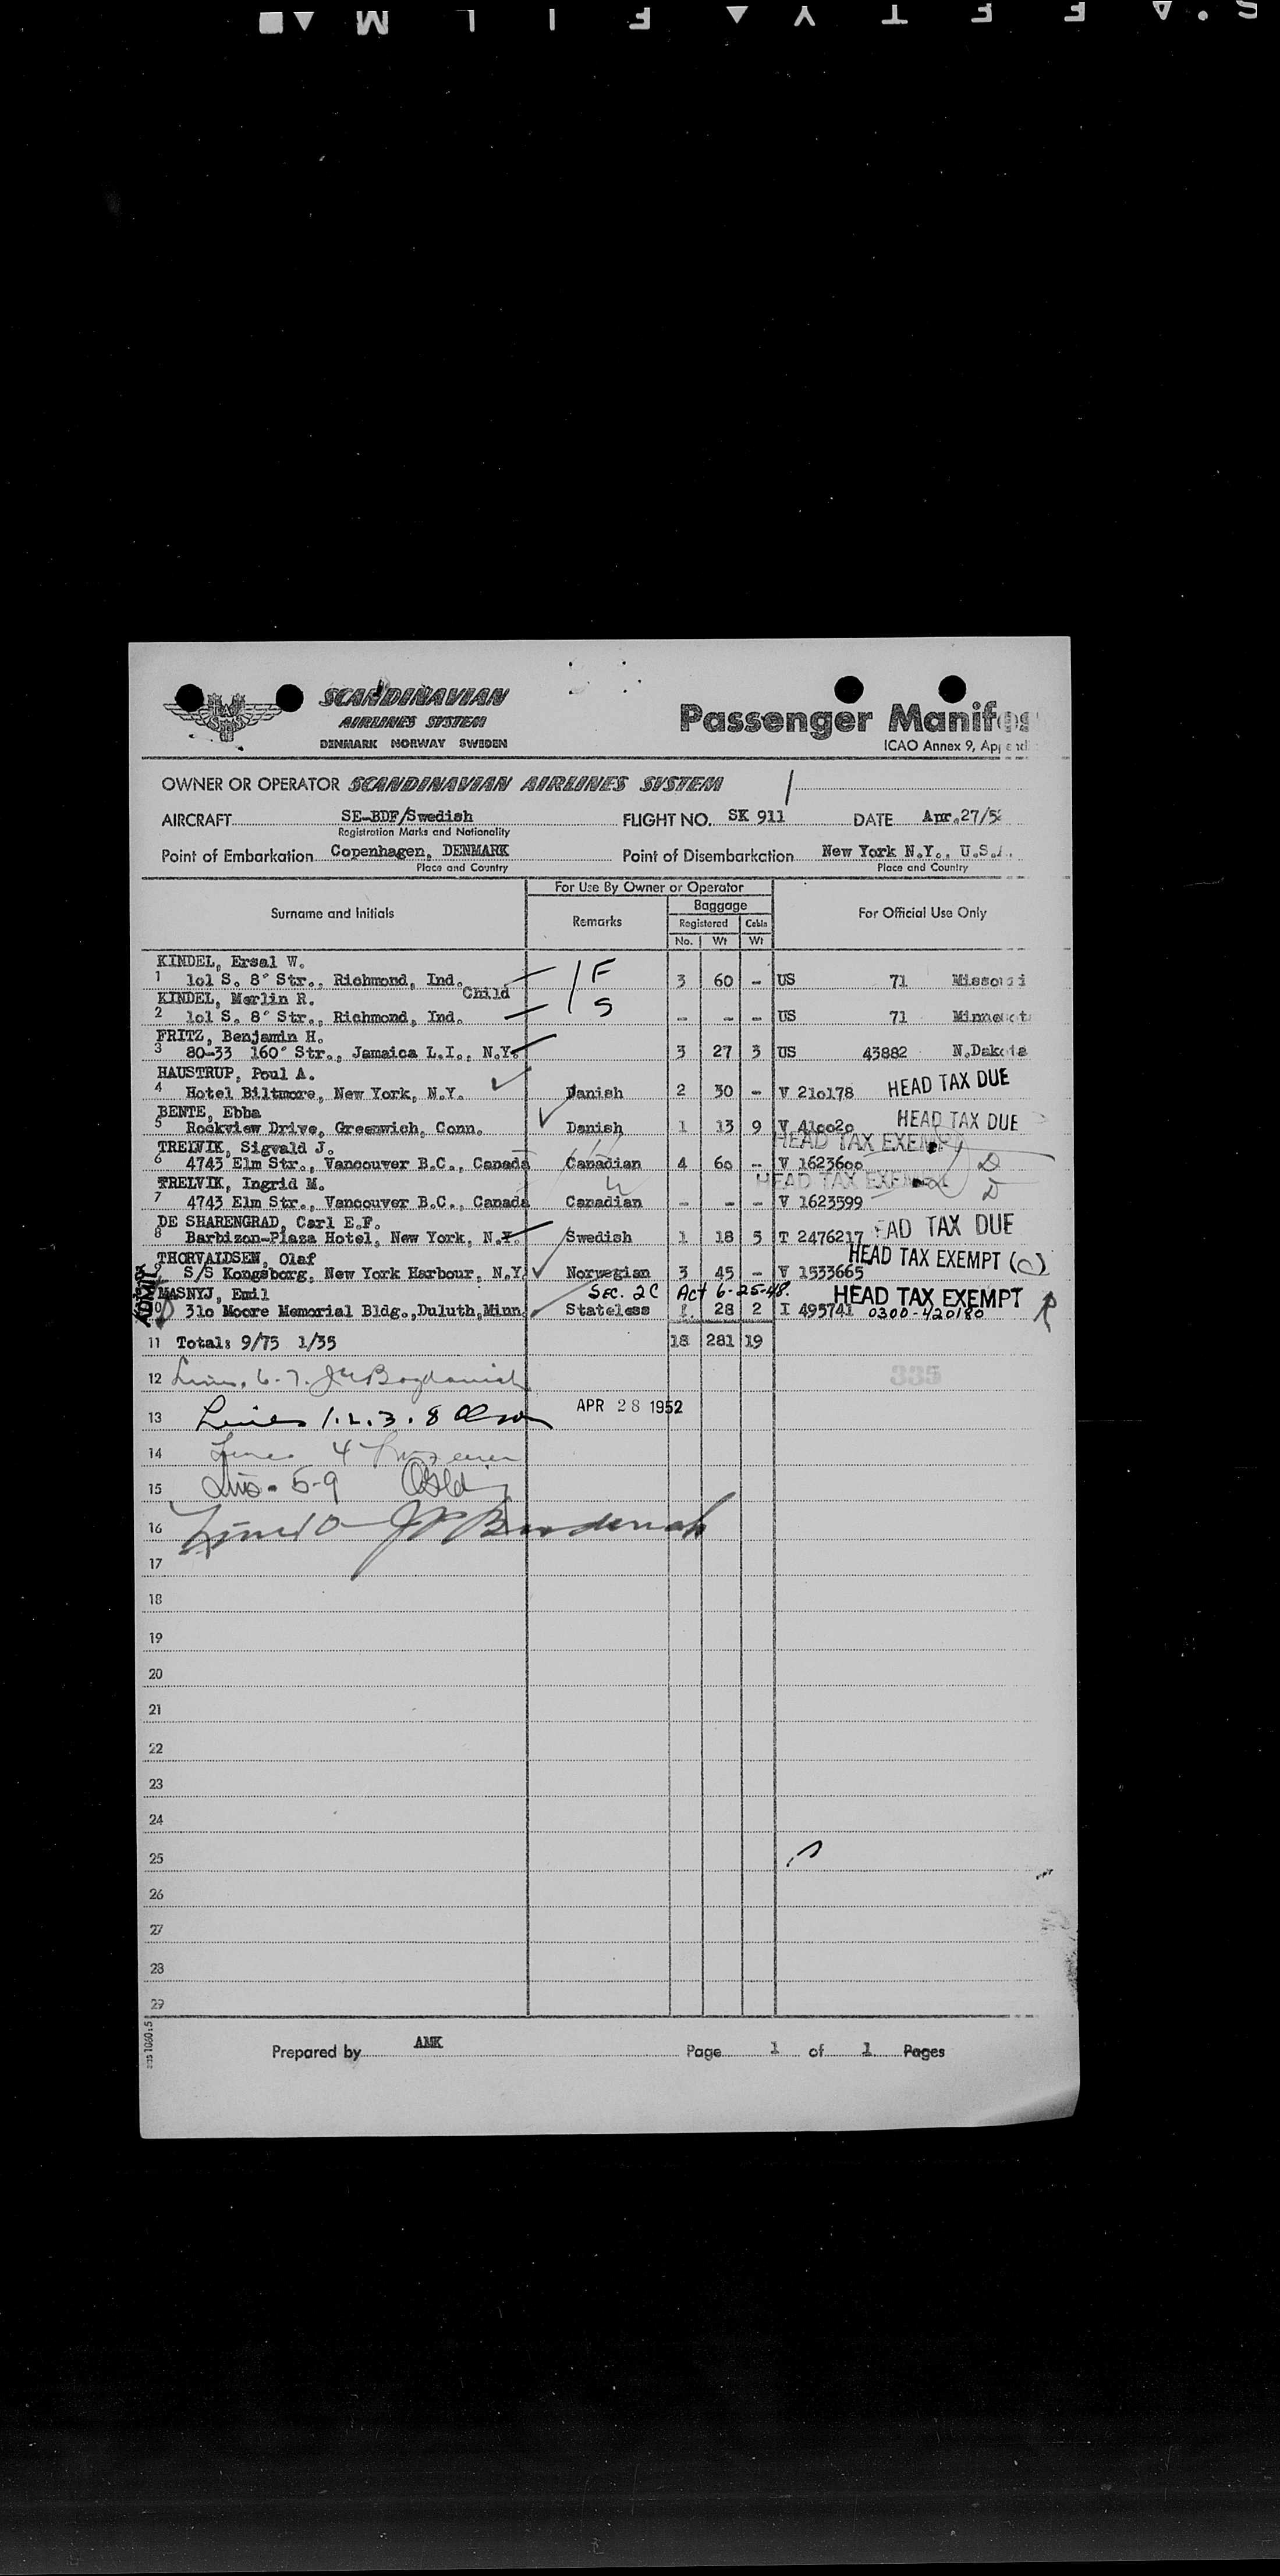 SCANDINAVIAN
AIRLINES SYSTEM
DENMARK NORWAY SWEDEN
Passenger Manifes
ICAO Annex 9, Appendi
OWNER OR OPERATOR SCANDINAVIAN AIRLINES SYSTEM
AIRCRAFT SE-BDF/Swedish FLIGHT NO. SK 911 DATE Apr.27/52
Registration Marks and Nationality
Point of Embarkation Copenhagen, DENMARK Point of Disembarkation New York N.Y., U.S.A.
Place and Country Place and Country
For Use By Owner or Operator
Surname and Initials Remarks Baggage For Official Use Only
Registered Cabin
No. Wt Wt
KINDEL, Ersal W.
1 1o1 S. 8° Str., Richmond, Ind. F 3 60 - US 71 Missouri
KINDEL, Merlin R. Child
2 1o1 S. 8° Str., Richmond, Ind. S - - - US 71 Minnesota
FRITZ, Benjamin H.
3 80-33 160° Str., Jamaica L.I., N.Y. 3 27 3 US 43882 N.Dakota
HAUSTRUP, Poul A.
4 Hotel Biltmore, New York, N.Y. Danish 2 30 - V 21o178 HEAD TAX DUE
BENTE, Ebba
5 Rockview Drive, Greenwich, Conn. Danish 1 13 9 V 41oo2o HEAD TAX DUE
TRELVIK, Sigvald J. HEAD TAX EXEMPT
6 4743 Elm Str., Vancouver B.C., Canada Canadian 4 6o - V 16236oo D
TRELVIK, Ingrid M. HEAD TAX EXEMPT
7 4743 Elm Str., Vancouver B.C., Canada Canadian - - - V 1623599 D
DE SHARENGRAD, Carl E.F.
8 Barbizon-Plaza Hotel, New York, N.Y. Swedish 1 18 5 T 2476217 EAD TAX DUE
THORVALDSEN, Olaf HEAD TAX EXEMPT (C)
9 S/S Kongsborg, New York Harbour, N.Y. Norwegian 3 45 - V 1533665
MASNYJ, Emil Sec. 2C Act 6-25-48. HEAD TAX EXEMPT
ADMIT 10 31o Moore Memorial Bldg.,Duluth,Minn. Stateless 1 28 2 I 495741 0300-420180
11 Total: 9/75 1/35 18 281 19
12 Lines. 6-7. 335
13 Lines 1.2.3.8 Olson APR 28 1952
14 Lines 4
15 Lins. 5-9
16 Line 10
17
18
19
20
21
22
23
24
25
26
27
28
29
Prepared by ANK Page 1 of 1 Pages